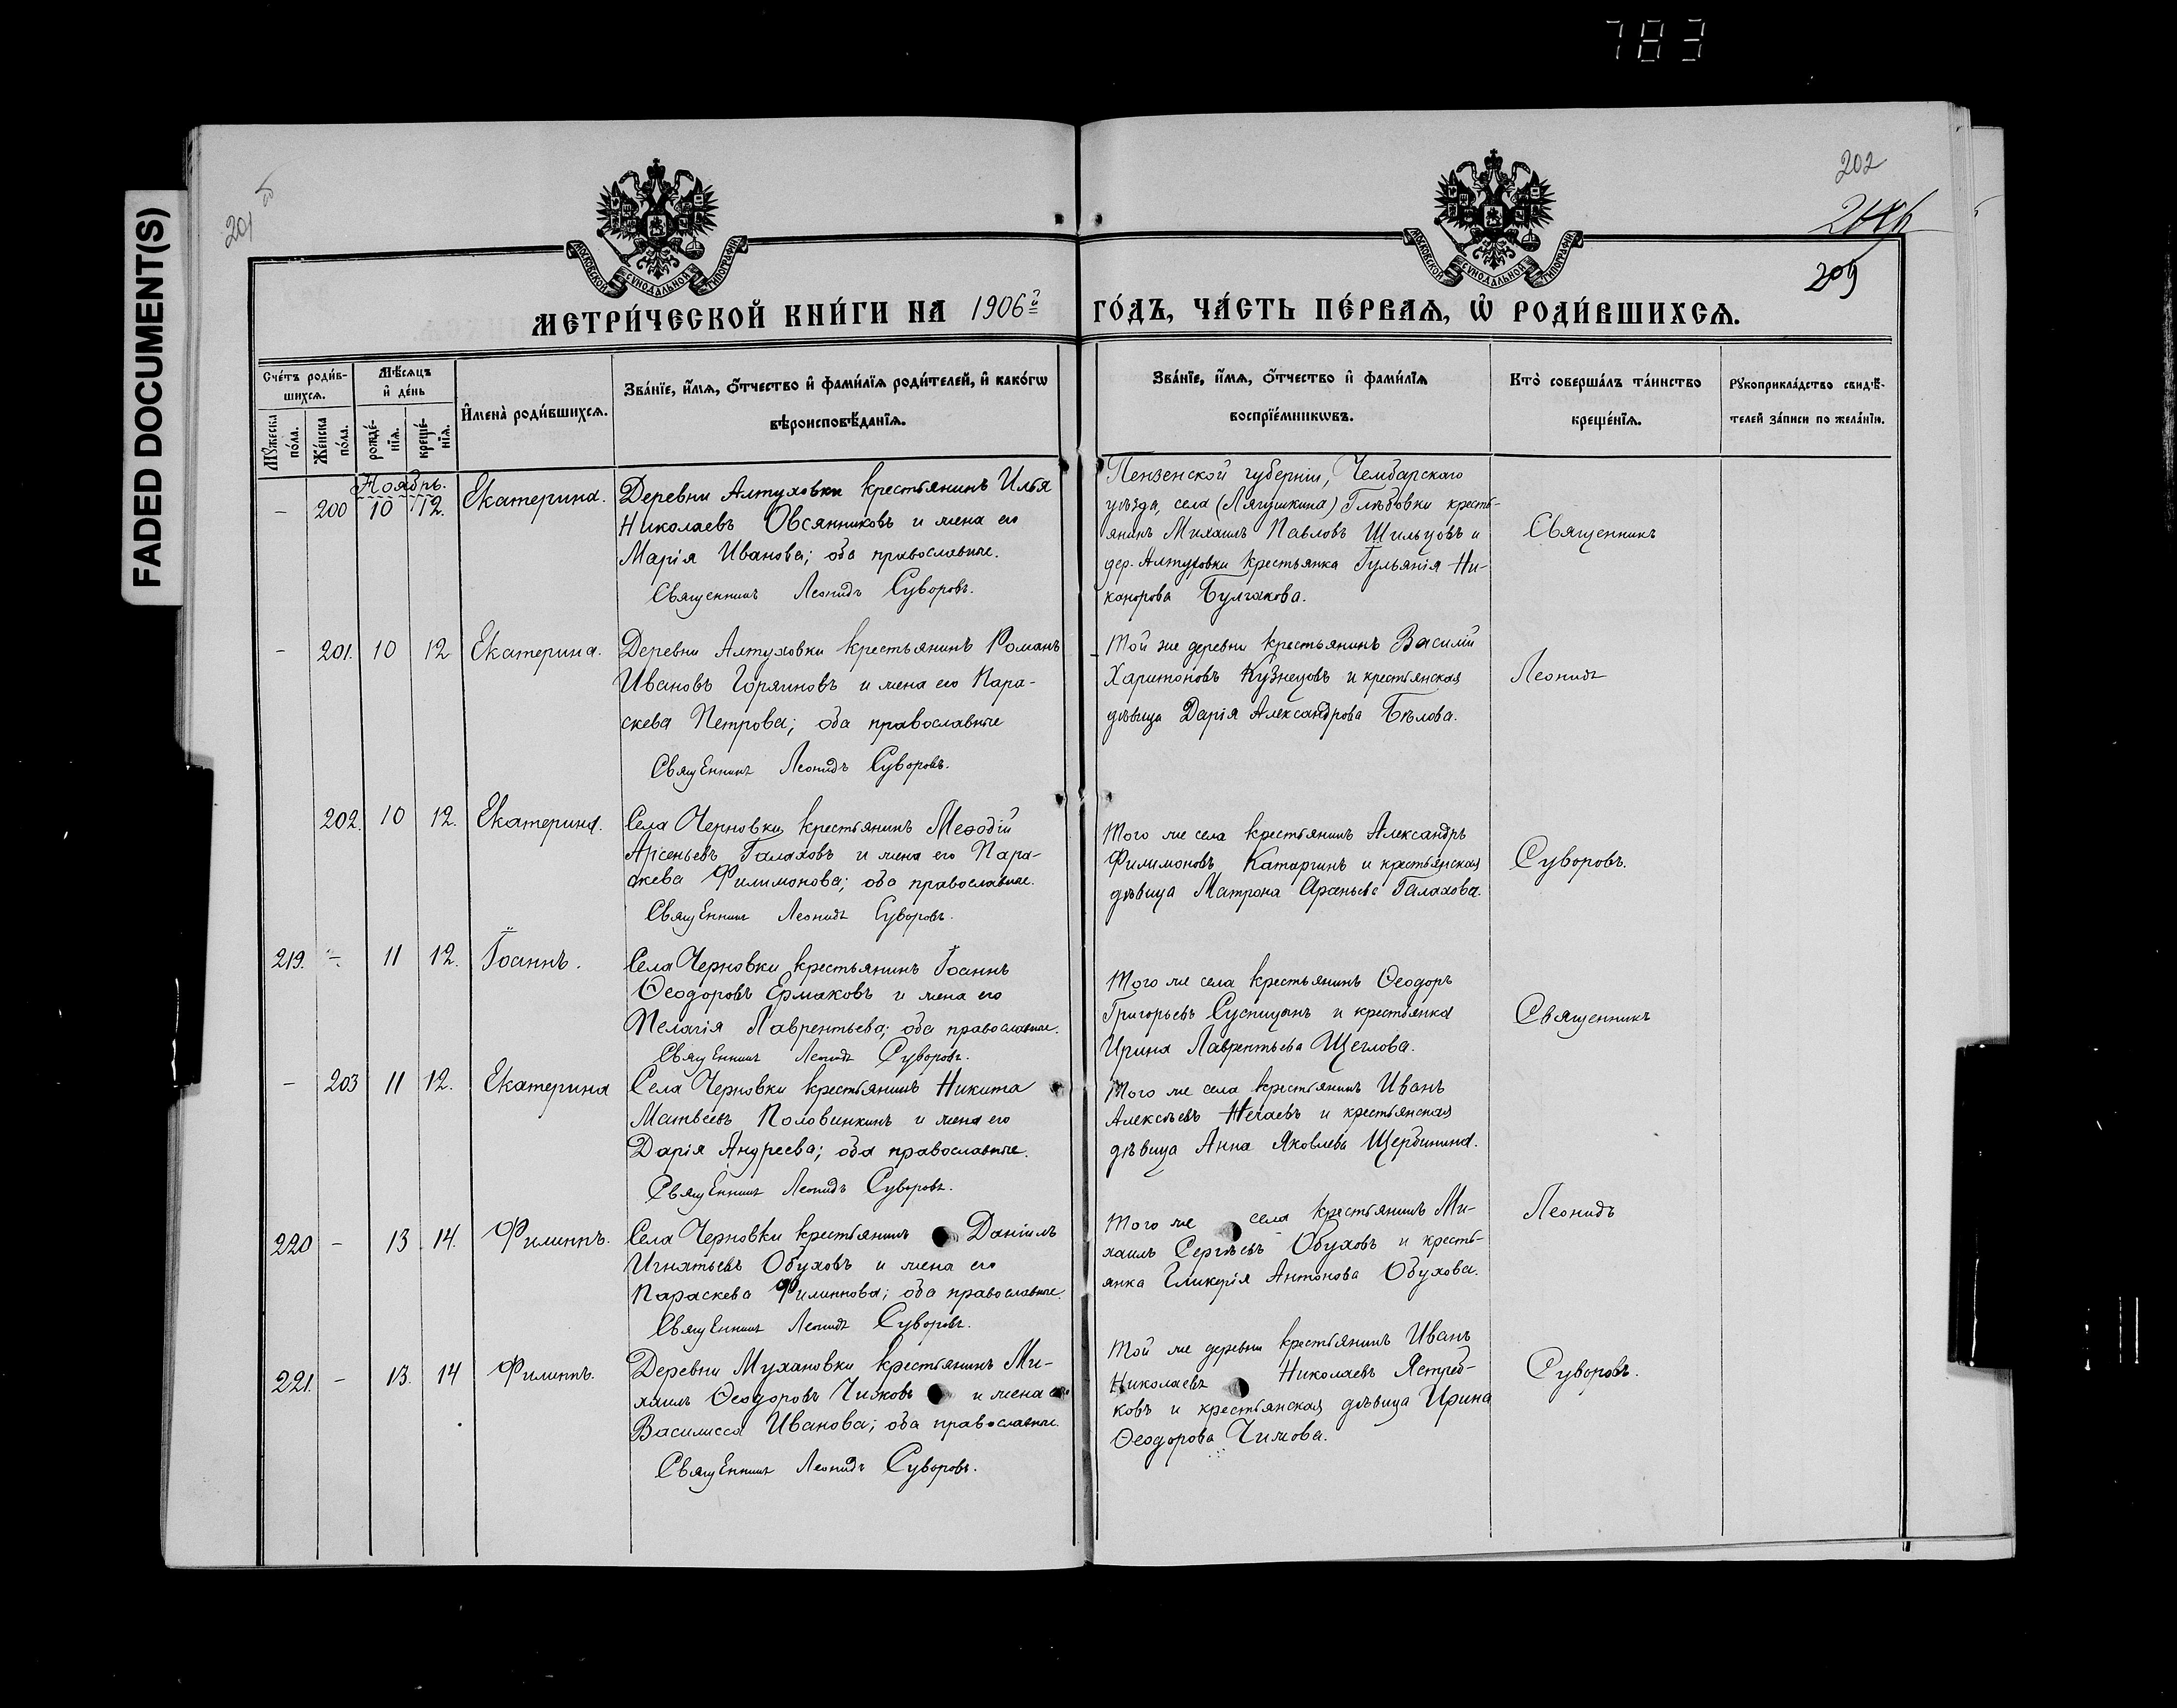 783
FADED DOCUMENT(S)
201 об
202
209
МОСКОВСКОЙ СѴНОДАЛЬНОЙ ТИПОГРАФІИ
МОСКОВСКОЙ СѴНОДАЛЬНОЙ ТИПОГРАФІИ
МЕТРИ́ЧЕСКОЙ КНИ́ГИ НА 1906й ГО́ДЪ, ЧА́СТЬ ПЕ́РВАѦ, Ѡ҆ РОДИ́ВШИХСѦ.
Сче́тъ роди́в-
шихсѧ.
Мѣ́сѧцъ
и҆ де́нь
Мꙋ́жеска
по́ла.
Же́нска
по́ла.
рожде́-
нїѧ.
креще́-
нїѧ.
И҆мена̀ роди́вшихсѧ.
Зва́нїе, и҆́мѧ, ѻ҆́тчество и҆ фами́лїѧ роди́телей, и҆ како́гѡ
вѣроисповѣ́данїѧ.
Зва́нїе, и҆́мѧ, ѻ҆́тчество и҆ фами́лїѧ
воспрїе́мникѡвъ.
Кто̀ соверша́лъ та́инство
креще́нїѧ.
Рꙋкоприкла́дство свидѣ́-
телей за́писи по жела́нїю.
Ноябрь.
– 200 10 12. Екатерина.
Деревни Алтуховки крестьянинъ Илья
Николаевъ Овсянниковъ и жена его
Марія Иванова; оба православные.
Священникъ Леонидъ Суворовъ.
Пензенской губерніи, Чембарскаго
уѣзда, села (Лягушкина) Глѣбовки кресть-
янинъ Михаилъ Павловъ Шильцовъ и
дер. Алтуховки крестьянка Іульянія Ни-
канорова Булгакова.
Священникъ
– 201. 10 12 Екатерина.
Деревни Алтуховки крестьянинъ Романъ
Ивановъ Горяиновъ и жена его Пара-
скева Петрова; оба православные
Священникъ Леонидъ Суворовъ.
Той же деревни крестьянинъ Василій
Харитоновъ Кузнецовъ и крестьянская
дѣвица Дарія Александрова Бѣлова.
Леонидъ
202. 10 12. Екатерина.
Села Черновки крестьянинъ Меѳодій
Арсеньевъ Галаховъ и жена его Пара-
скева Филимонова; оба православные.
Священникъ Леонидъ Суворовъ.
Того же села крестьянинъ Александръ
Филимоновъ Катаргинъ и крестьянская
дѣвица Матрона Арсеньева Галахова.
Суворовъ.
219. –. 11 12. Іоаннъ.
Села Черновки крестьянинъ Іоаннъ
Ѳеодоровъ Ермаковъ и жена его
Пелагія Лаврентьева; оба православные.
Священникъ Леонидъ Суворовъ.
Того же села крестьянинъ Ѳеодоръ
Григорьевъ Суспицынъ и крестьянка
Ирина Лаврентьева Щеглова.
Священникъ
– 203 11 12. Екатерина
Села Черновки крестьянинъ Никита
Матвѣевъ Половинкинъ и жена его
Дарія Андреева; оба православные.
Священникъ Леонидъ Суворовъ.
Того же села крестьянинъ Иванъ
Алексѣевъ Нечаевъ и крестьянская
дѣвица Анна Яковлева Щербинина.
220 – 13 14. Филиппъ.
Села Черновки крестьянинъ Даніилъ
Игнатьевъ Обуховъ и жена его
Параскева Филиппова; оба православные.
Священникъ Леонидъ Суворовъ.
Того же села крестьянинъ Ми-
хаилъ Сергѣевъ Обуховъ и кресть-
янка Гликерія Антонова Обухова.
Леонидъ
221. – 13. 14 Филиппъ.
Деревни Мухановки крестьянинъ Ми-
хаилъ Ѳеодоровъ Чижовъ и жена его
Василисса Иванова; оба православные.
Священникъ Леонидъ Суворовъ.
Той же деревни крестьянинъ Иванъ
Николаевъ Николаевъ Ястреб-
ковъ и крестьянская дѣвица Ирина
Ѳеодорова Чижова.
Суворовъ.